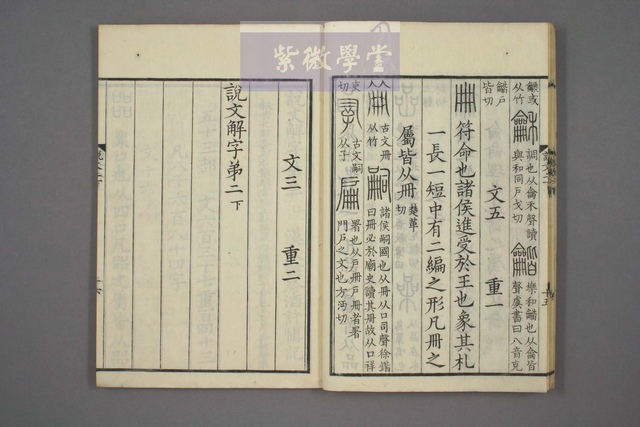 紫微學堂
龤或从竹
龢 調也从龠禾聲讀與和同戶戈切
龤 樂和龤也从龠皆聲虞書曰八音克龤戶皆切
文五 重一
冊 符命也諸侯進受於王也象其札
一長一短中有二編之形凡冊之
屬皆从冊楚革切
古文冊从竹
嗣 諸侯嗣國也从冊从口司聲徐鍇曰冊必於廟史讀其冊故从口祥吏切
古文嗣从子
扁 署也从戶冊戶冊者署門戶之文也方沔切
文三 重二
說文解字弟二下